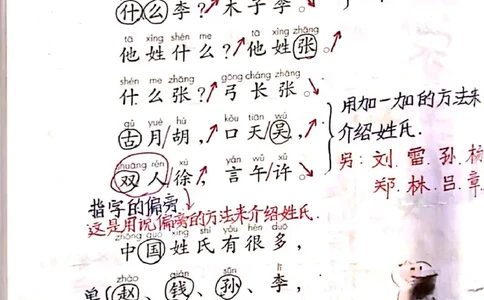 什么李？木子李。
tā xìng shén me tā xìng zhāng
他姓什么？他姓张。
shén me zhāng gōng cháng zhāng
什么张？弓长张。
gǔ yuè hú kǒu tiān wú
古月胡，口天吴，
用加一加的方法来
介绍姓氏.
shuāng rén xú yán wǔ xǔ
双人徐，言午许。
另：刘.雷.孙.杨
郑.林.吕.章
指字的偏旁
这是用说偏旁的方法来介绍姓氏.
zhōng guó xìng shì yǒu hěn duō
中国姓氏有很多，
zhào qián sūn lǐ
赵、钱、孙、李，